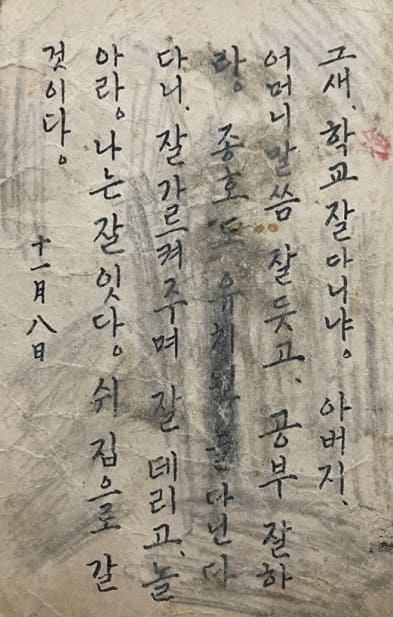 그새, 학교 잘 다니냐。 아버지,
어머니 말씀 잘 듯고, 공부 잘 하
라。 종호도 유치원을 다닌다
다니, 잘 가르켜 주며 잘 데리고, 놀
아라。 나는 잘 잇다。 쉬 집으로 갈
것이다。
十一月八日